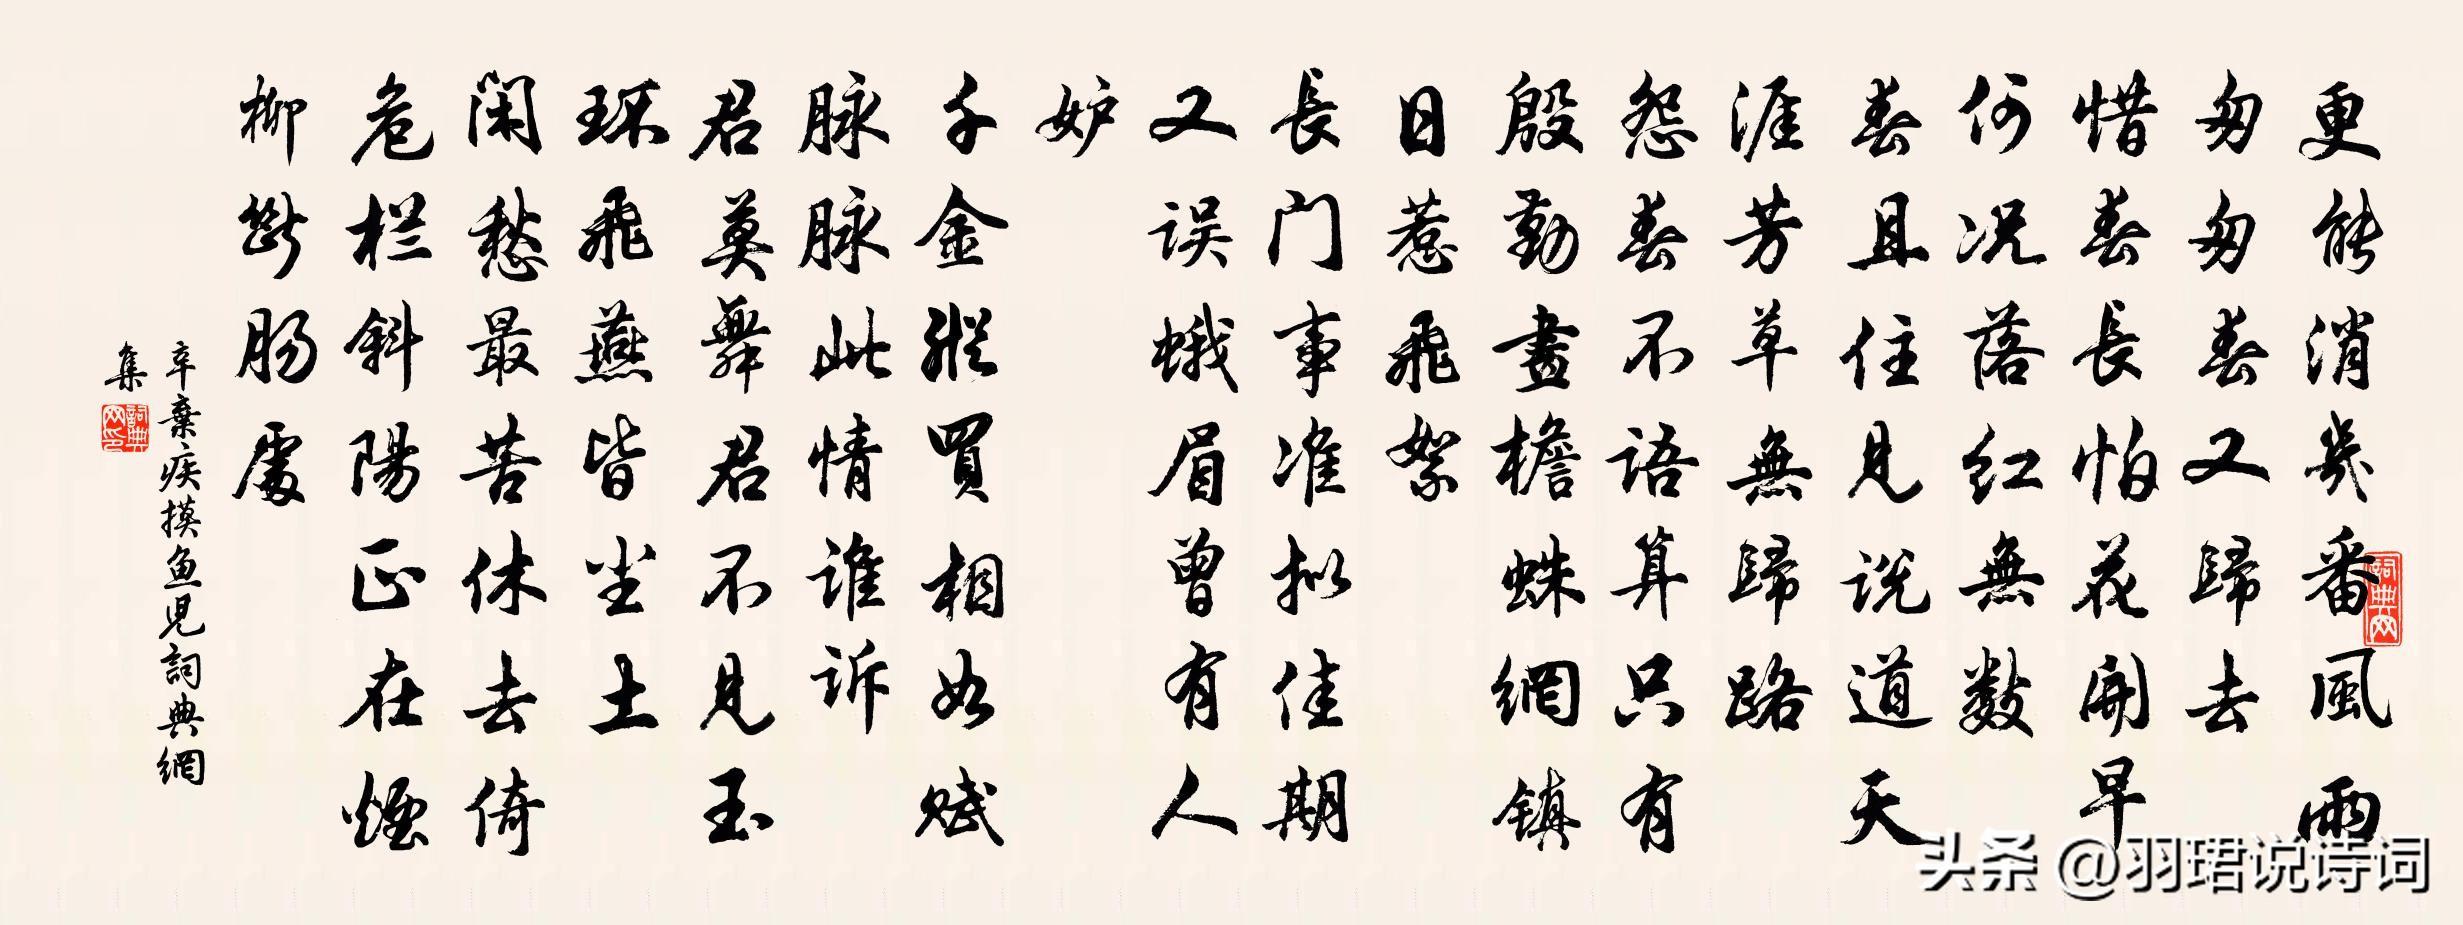 更能消幾番風雨
匆匆春又歸去
惜春長怕花開早
何况落红無数
春且住見说道天
涯芳草無歸路
怨春不语算只有
殷勤畫檐蛛網镇
日惹飛絮
長门事准拟佳期
又误蛾眉曾有人
妒
千金縱買相如赋
脉脉此情谁诉
君莫舞君不見玉
环飛燕皆尘土
闲愁最苦休去倚
危栏斜陽正在煙
柳斷肠處
辛棄疾摸鱼児詞典網
集
詞典网
詞典网印
头条 @羽珺说诗词